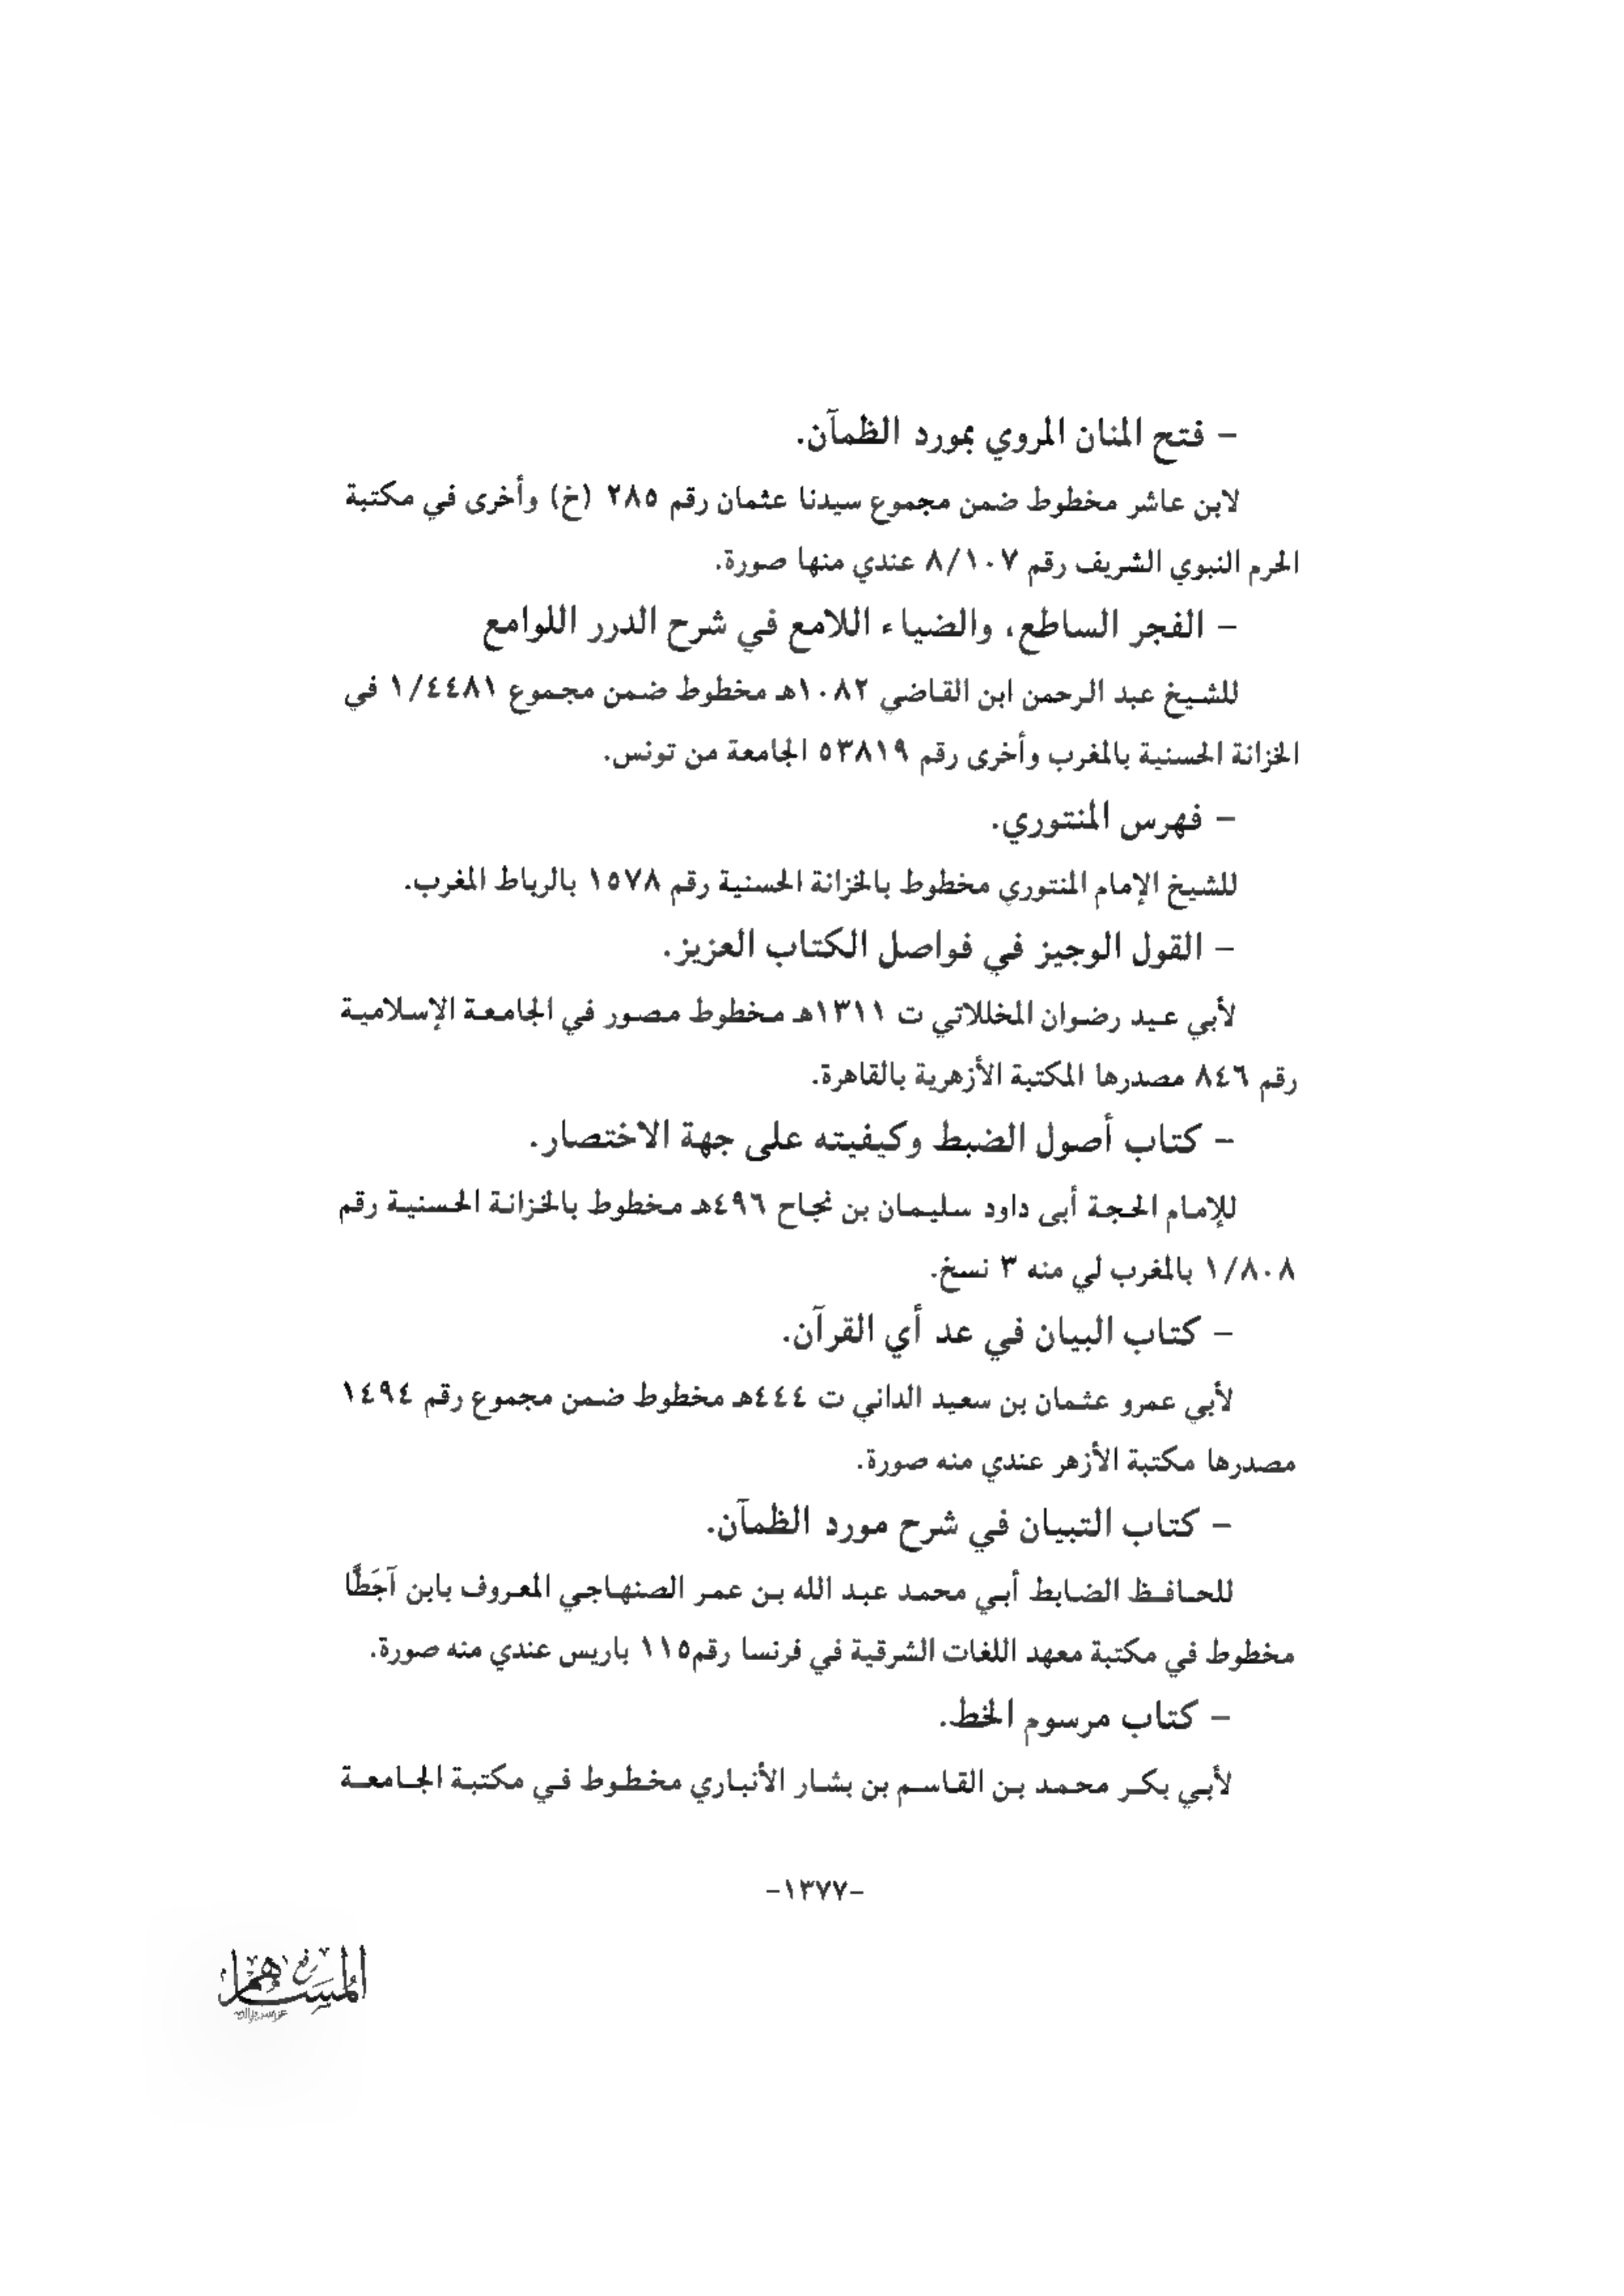 – فتح المنان المروي بمورد الظمآن.
لابن عاشر مخطوط ضمن مجموع سيدنا عثمان رقم ٢٨٥ (خ) وأخرى في مكتبة
الحرم النبوي الشريف رقم ٨/١٠٧ عندي منها صورة.
– الفجر الساطع، والضياء اللامع في شرح الدرر اللوامع
للشيخ عبد الرحمن ابن القاضي ١٠٨٢هـ مخطوط ضمن مجموع ١/٤٤٨١ في
الخزانة الحسنية بالمغرب وأخرى رقم ٥٣٨١٩ الجامعة من تونس.
– فهرس المنتوري.
للشيخ الإمام المنتوري مخطوط بالخزانة الحسنية رقم ١٥٧٨ بالرباط المغرب.
– القول الوجيز في فواصل الكتاب العزيز.
لأبي عيد رضوان المخللاتي ت ١٣١١هـ مخطوط مصور في الجامعة الإسلامية
رقم ٨٤٦ مصدرها المكتبة الأزهرية بالقاهرة.
– كتاب أصول الضبط وكيفيته على جهة الاختصار.
للإمام الحجة أبى داود سليمان بن نجاح ٤٩٦هـ مخطوط بالخزانة الحسنية رقم
١/٨٠٨ بالمغرب لي منه ٣ نسخ.
– كتاب البيان في عد أي القرآن.
لأبي عمرو عثمان بن سعيد الداني ت ٤٤٤هـ مخطوط ضمن مجموع رقم ١٤٩٤
مصدرها مكتبة الأزهر عندي منه صورة.
– كتاب التبيان في شرح مورد الظمآن.
للحافظ الضابط أبي محمد عبد الله بن عمر الصنهاجي المعروف بابن آجَطَّا
مخطوط في مكتبة معهد اللغات الشرقية في فرنسا رقم١١٥ باريس عندي منه صورة.
– كتاب مرسوم الخط.
لأبي بكر محمد بن القاسم بن بشار الأنباري مخطوط في مكتبة الجامعة
–١٣٧٧–